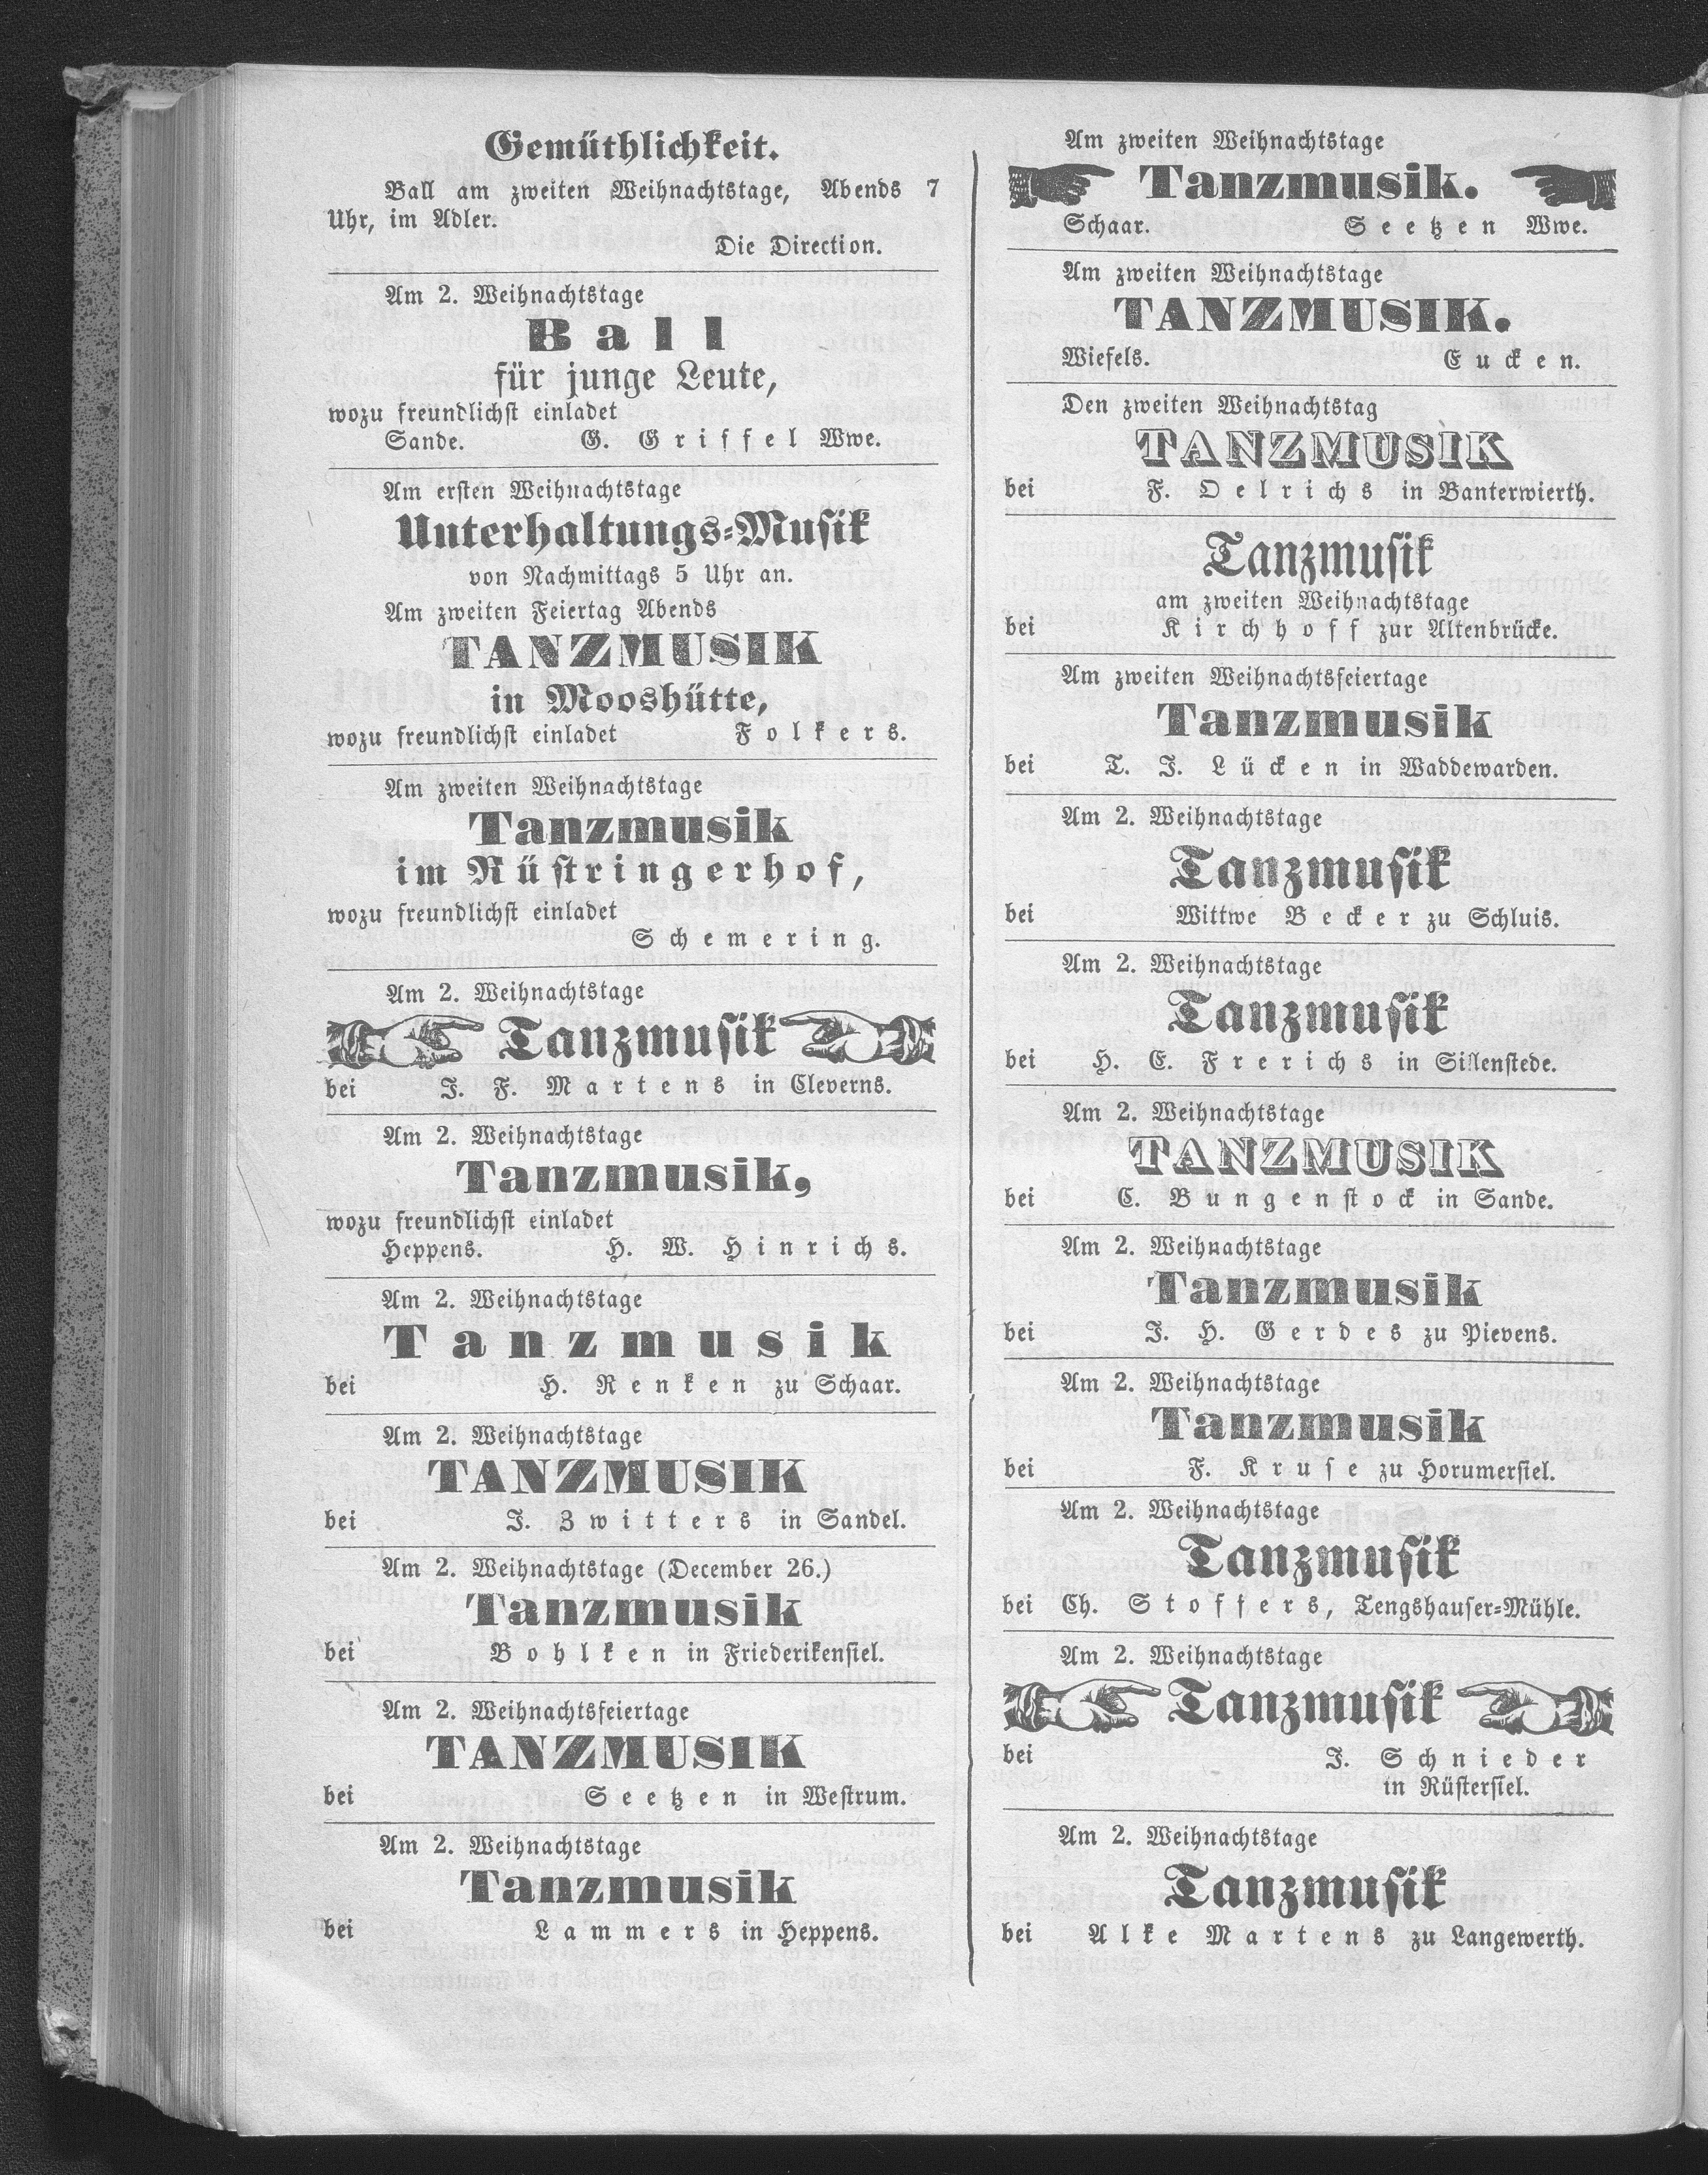 Gemüthlichkeit.
Ball am zweiten Weihnachtstage, Abends 7
Uhr, im Adler.
Die Direction.
Am 2. Weihnachtstage
Ball
für junge Leute,
wozu freundlichst einladet
Sande. G. Griffel Wwe.
Am ersten Weihnachtstage
Unterhaltungs-Musik
von Nachmittags 5 Uhr an.
Am zweiten Feiertag Abends
TANZMUSIK
in Mooshütte,
wozu freundlichst einladet Folkers.
Am zweiten Weihnachtstage
Tanzmusik
im Rüstringerhof,
wozu freundlichst einladet
Schemering.
Am 2. Weihnachtstage
Tanzmusik
bei J. F. Martens in Cleverns.
Am 2. Weihnachtstage
Tanzmusik,
wozu freundlichst einladet
Heppens. H. W. Hinrichs.
Am 2. Weihnachtstage
Tanzmusik
bei H. Renken zu Schaar.
Am 2. Weihnachtstage
TANZMUSIK
bei J. Zwitters in Sandel.
Am 2. Weihnachtstage (December 26.)
Tanzmusik
bei Bohlken in Friederikensiel.
Am 2. Weihnachtsfeiertage
TANZMUSIK
bei Seetzen in Westrum.
Am 2. Weihnachtstage
Tanzmusik
bei Lammers in Heppens.
Am zweiten Weihnachtstage
Tanzmusik.
Schaar. Seetzen Wwe.
Am zweiten Weihnachtstage
TANZMUSIK.
Wiefels. Eucken.
Den zweiten Weihnachtstag
TANZMUSIK
bei F. Oelrichs in Banterwierth.
Tanzmusik
am zweiten Weihnachtstage
bei Kirchhoff zur Altenbrücke.
Am zweiten Weihnachtsfeiertage
Tanzmusik
bei T. J. Lücken in Waddewarden.
Am 2. Weihnachtstage
Tanzmusik
bei Wittwe Becker zu Schluis.
Am 2. Weihnachtstage
Tanzmusik
bei H. E. Frerichs in Sillenstede.
Am 2. Weihnachtstage
TANZMUSIK
bei C. Bungenstock in Sande.
Am 2. Weihnachtstage
Tanzmusik
bei J. H. Gerdes zu Pievens.
Am 2. Weihnachtstage
Tanzmusik
bei F. Kruse zu Horumersiel.
Am 2. Weihnachtstage
Tanzmusik
bei Ch. Stoffers, Tengshauser-Mühle.
Am 2. Weihnachtstage
Tanzmusik
bei J. Schnieder
in Rüstersiel.
Am 2. Weihnachtstage
Tanzmusik
bei Alke Martens zu Langewerth.